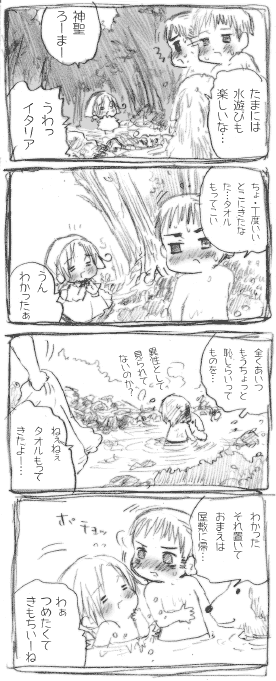 たまには
水遊びも
楽しいな…
神聖
ろーまー
うわっ
イタリア
ちょ・丁度いい
とこにきたな
た…タオル
もってこい
うん
わかったぁ
全くあいつ
もうちょっと
恥じらいって
ものを…
異性として
見られて
ないのか?
ねぇねぇ
タオルもって
きたよー…
わかった
それ置いて
おまえは
屋敷に帰…
ボチョッ
わぁ
つめたくて
きもちぃーね